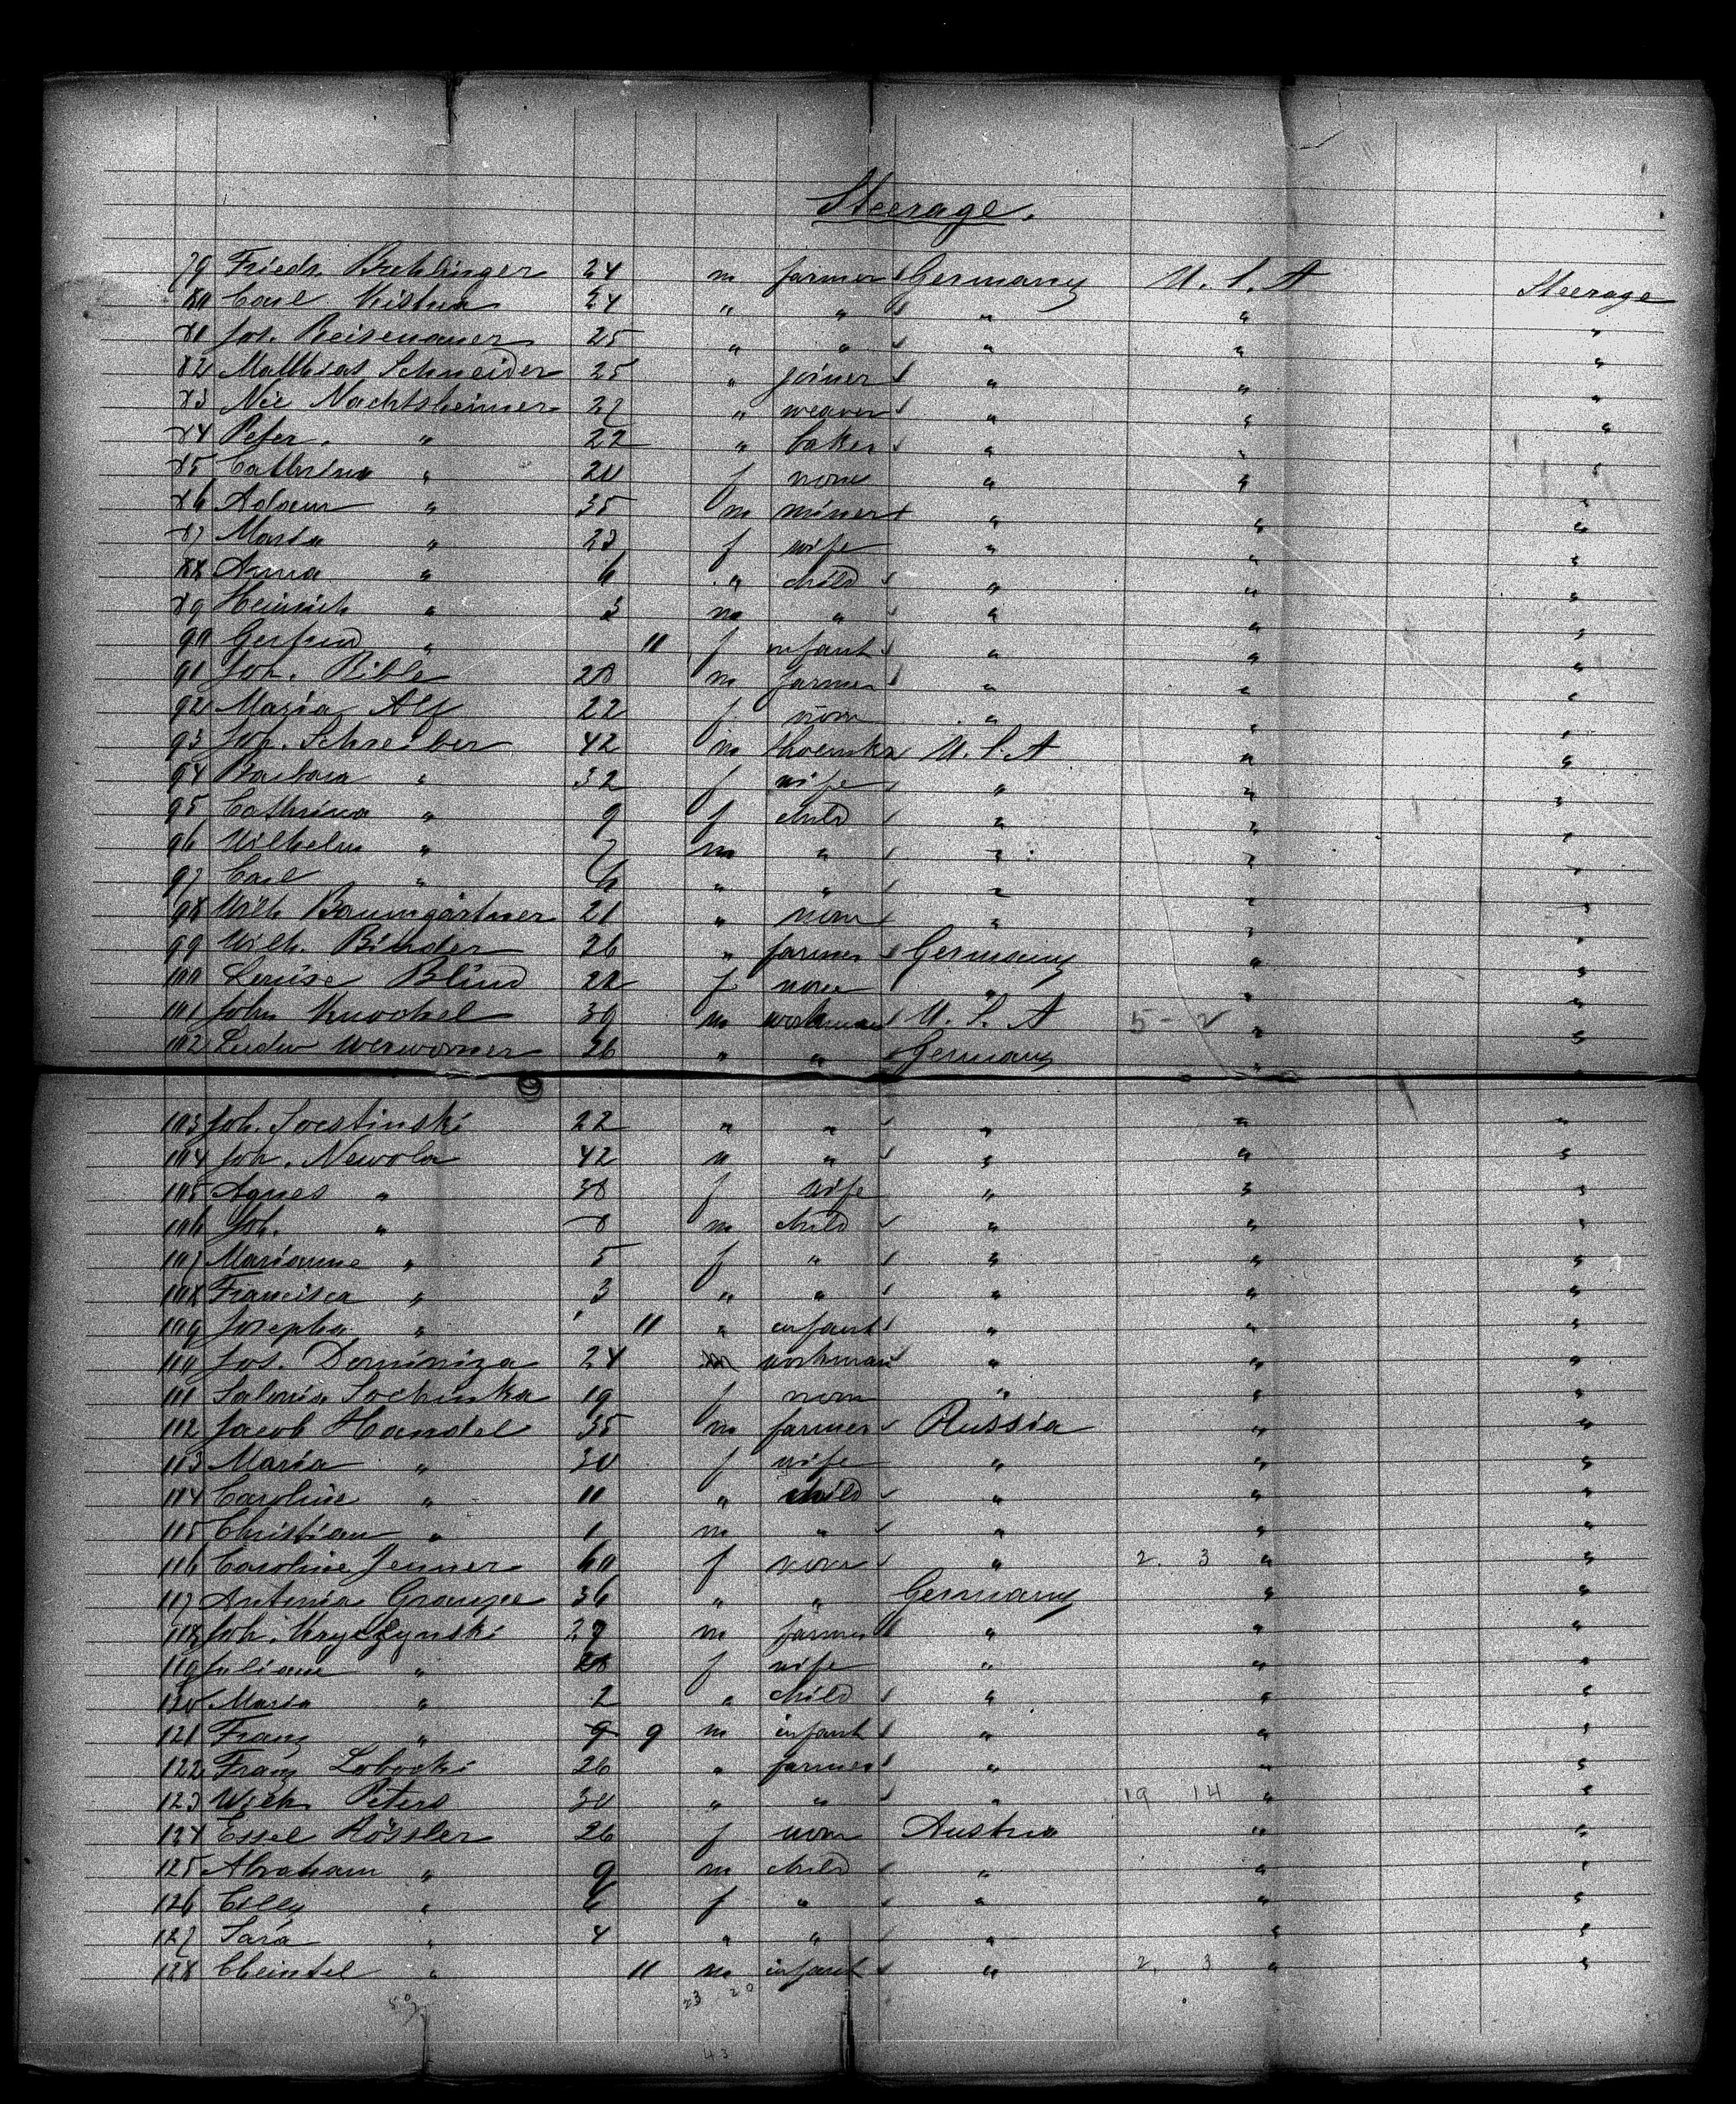 Steerage.
79 Friedr. Brehlinger 24 m farmer Germany U. S. A Steerage
80 Carl Kistna 24 " " " " "
81 Jos. Reisenauer 25 " " " " "
82 Mathias Schneider 25 " joiner " " "
83 Nic Nachtsheimer 27 " weaver " " "
84 Peter " 22 " baker " " "
85 Cathrina " 20 f none " " "
86 Adam " 35 m miner " " "
87 Maria " 23 f wife " " "
88 Anna " 6 " child " " "
89 Heinrich " 3 m " " " "
90 Gertrud " 11 f infant " " "
91 Joh. Bible 28 m farmer " " "
92 Maria Alf 22 f none " " "
93 Joh. Schreiber 42 m U. S. A " "
94 Barbara " 32 f wife " " "
95 Cathrina " 9 f child " " "
96 Wilhelm " 7 m " " " "
97 Carl " 6 " " " " "
98 Wilh Baumgärtner 21 " none " " "
99 Wilh. Binder 26 " farmer Germany " "
100 Louise Blind 22 f none " " "
101 John Knochel 39 m workman U. S. A 5 - 2 " "
102 Ludw Werworner 26 " " Germany " "
103 Joh. Soestinski 22 " " " " "
104 Joh. Newola 42 " " " " "
105 Agnes " 38 f wife " " "
106 Joh. " 8 m child " " "
107 Marianne " 5 f " " " "
108 Francisca " 3 " " " " "
109 Josepha " 11 " infant " " "
110 Jos. Dominiza 24 m workman " " "
111 Salonia Sochinska 19 f none " " "
112 Jacob Handel 35 m farmer Russia " "
113 Maria " 30 f wife " " "
114 Caroline " 11 " child " " "
115 Christian " 1 m " " " "
116 Caroline Jenner 60 f none " 2. 3 " "
117 Antonia 36 " " Germany " "
118 Joh. 29 m farmer " " "
119 Juliane " 28 f wife " " "
120 Maria " 2 " child " " "
121 Franz " 9 9 m infant " " "
122 Franz Lobocki 26 " farmer " " "
123 Wilh Peters 30 " " " 19 14 " "
124 Essel Rössler 26 f none Austria " "
125 Abraham " 9 m child " " "
126 Cilly " 6 f " " " "
127 Sara " 4 " " " " "
128 Cheintel " 11 m infant " 2. 3 " "
23 20
43